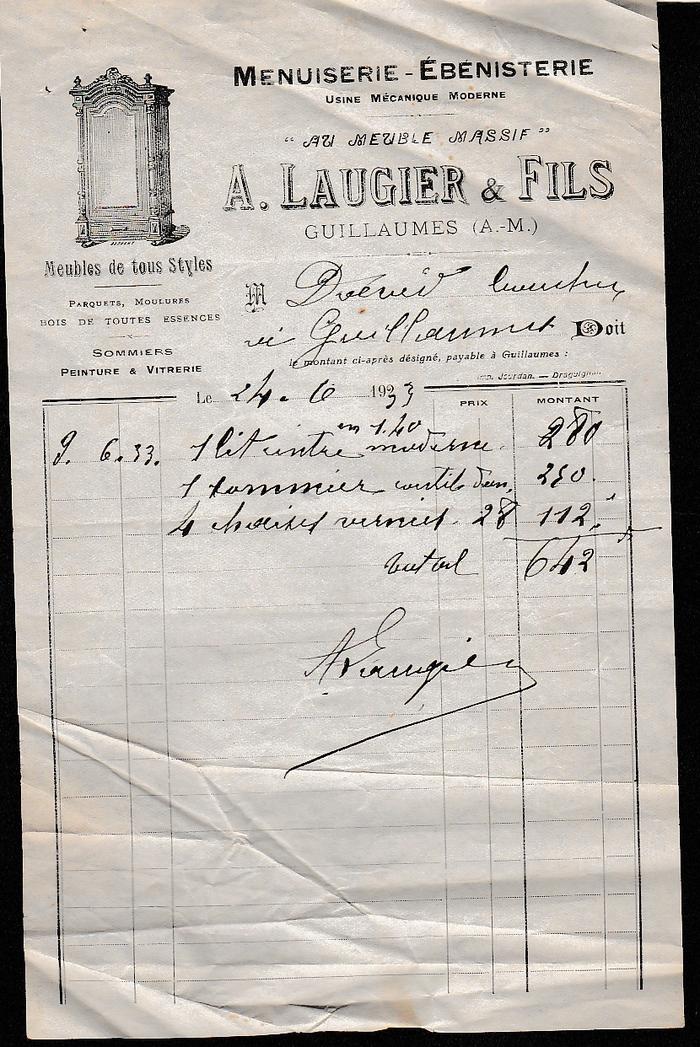 MENUISERIE - ÉBÉNISTERIE
USINE MÉCANIQUE MODERNE
"AU MEUBLE MASSIF"
A. LAUGIER & FILS
GUILLAUMES (A.-M.)
Meubles de tous Styles
PARQUETS, MOULURES
BOIS DE TOUTES ESSENCES
SOMMIERS
PEINTURE & VITRERIE
M
Guillaumes Doit
le montant ci-après désigné, payable à Guillaumes :
Imp. Jourdan. — Draguignan
Le 24. 6 1933
PRIX MONTANT
en 1.40
9. 6. 33. 1 lit moderne 280
1 sommier 250.
4 chaises vernies. 28 112.
total 642
A Laugier